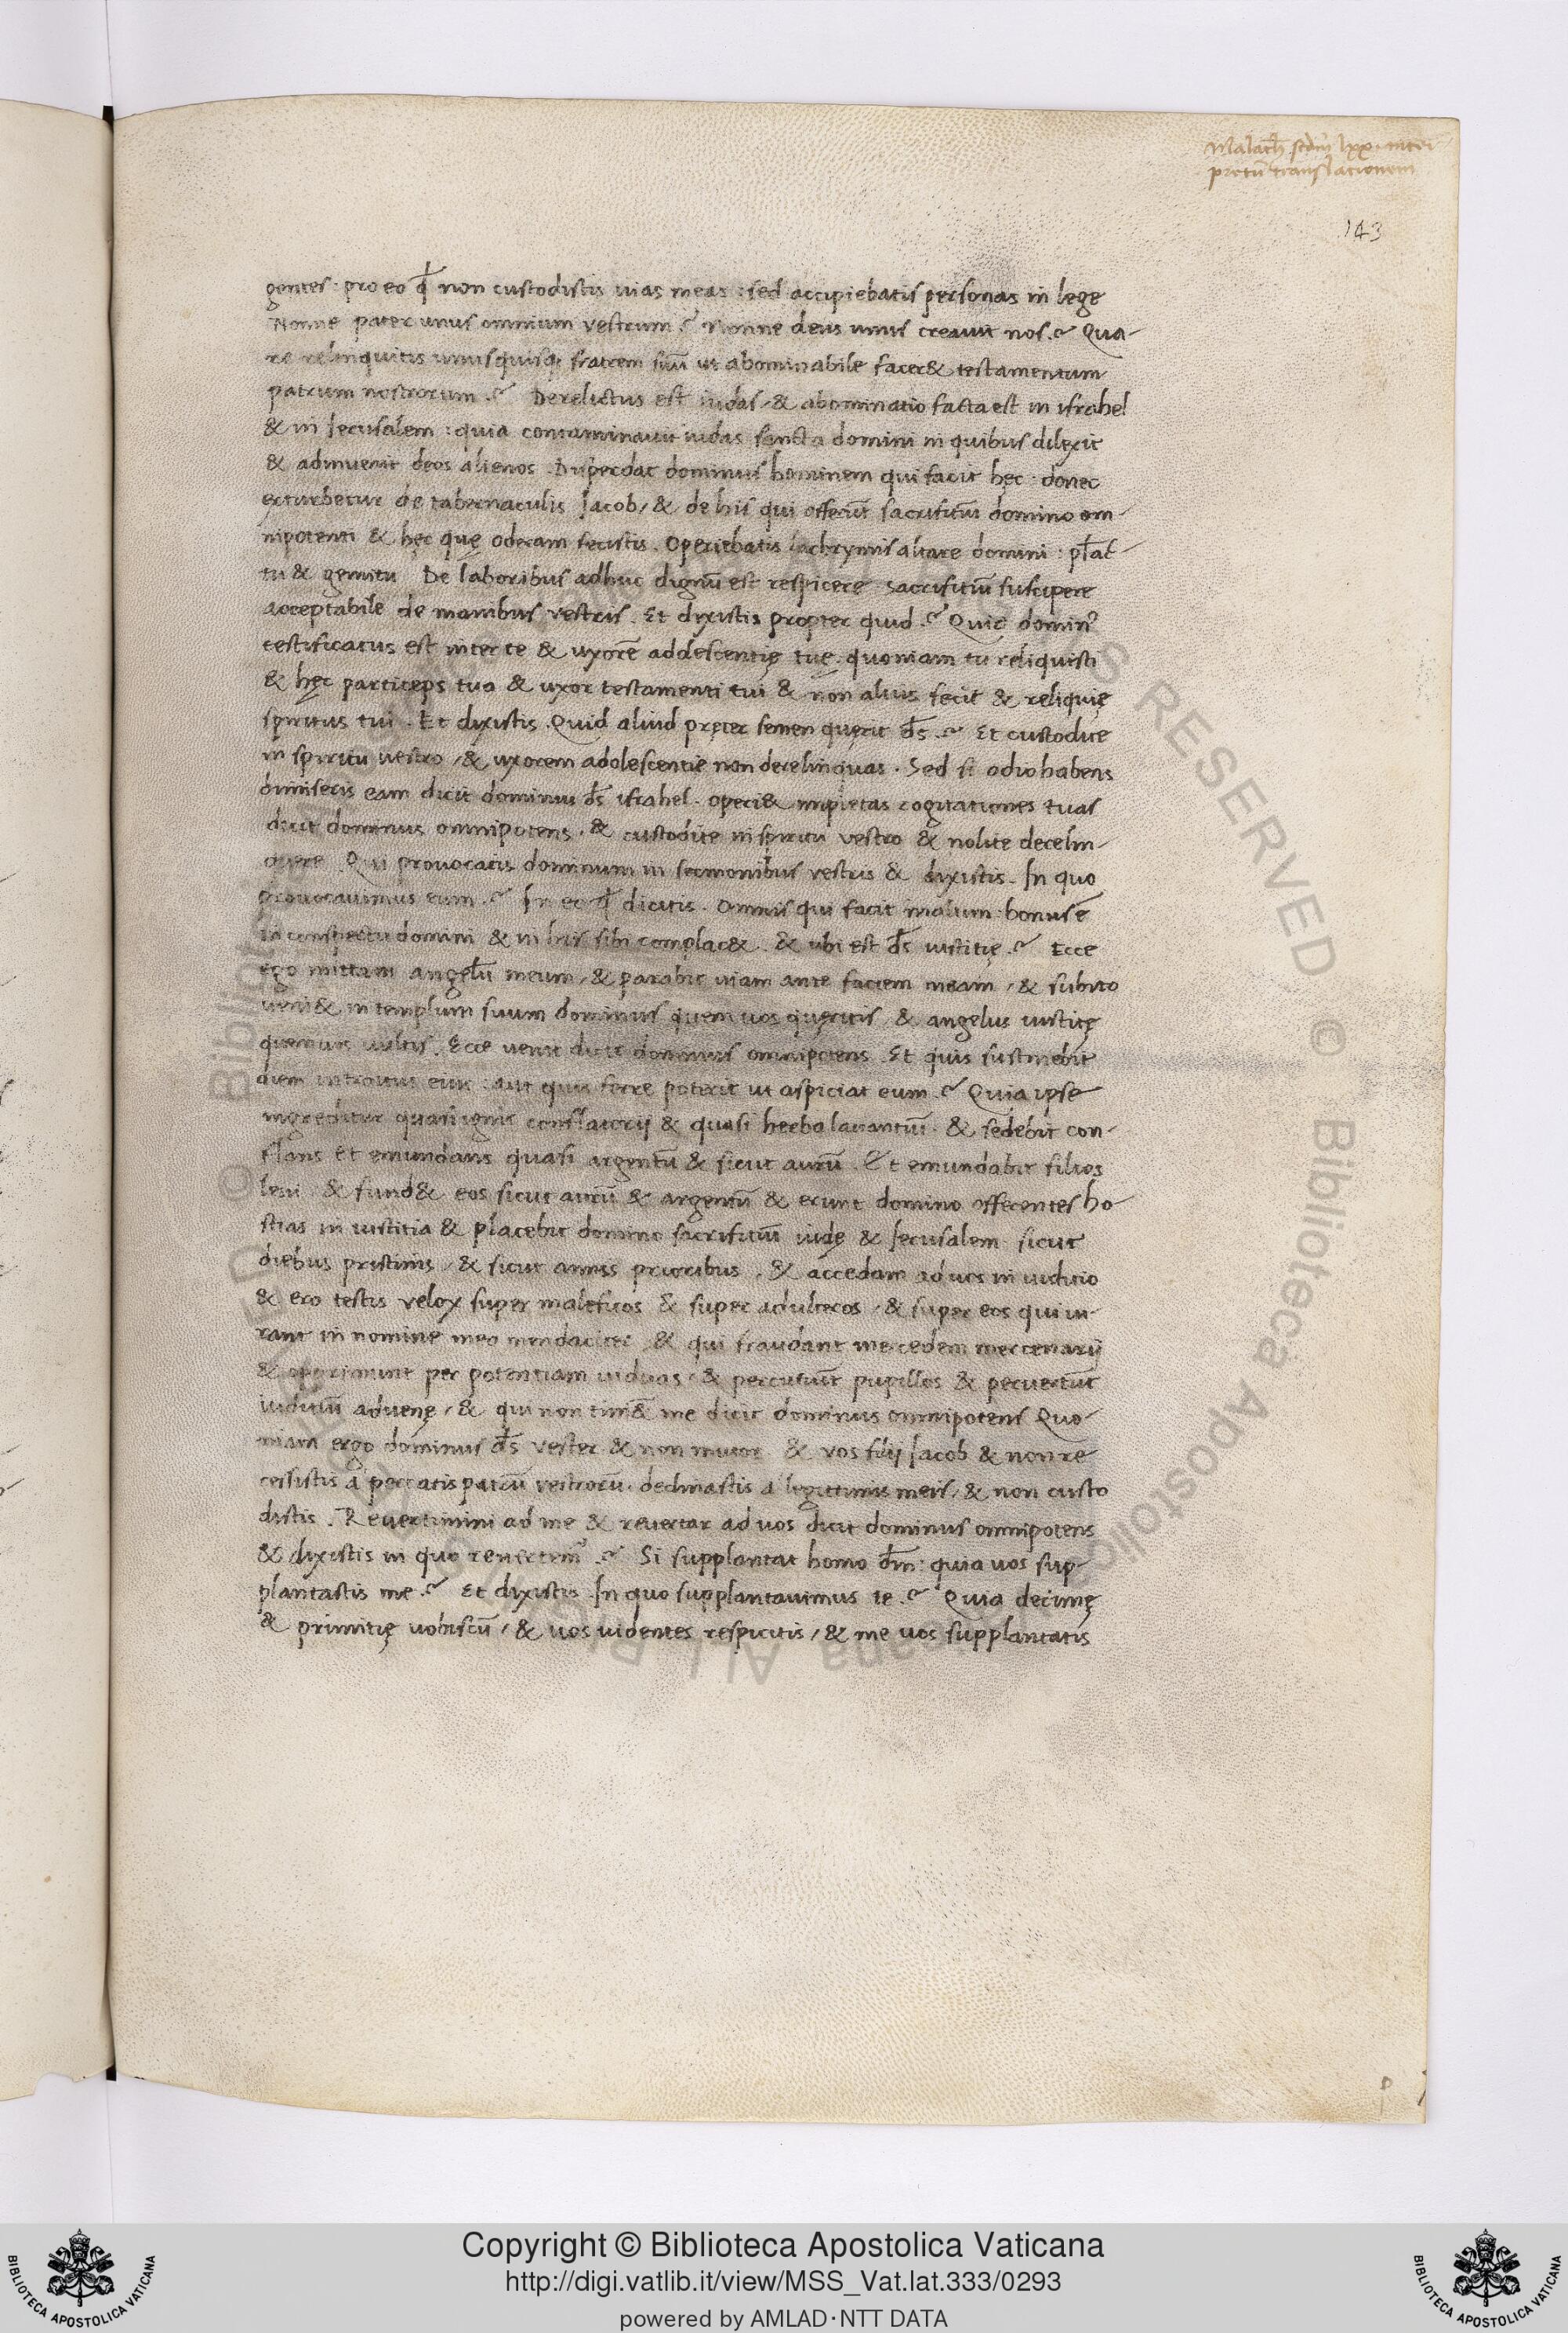 Malach scdm lxx inter
pretu translacionem
143
gentes · pro eo ꝙ non custodistis uias meas : sed accipiebatis personas in lege
Nonne pater unus omnium vestrum ? Nonne deus unus creauit nos ? Qua-
re relinquitis unusquisq; fratrem suū ut abominabile facer& testamentum
patrum nostrorum ? Derelictus est iudas / & abominatio facta est in israhel
& in Jerusalem : quia contaminauit iudas sancta domini in quibus dilexit
& adinuenit deos alienos . Disperdat dominus hominem qui facit hęc · donec
exturbetur de tabernaculis Jacob / & de his qui offerūt sacrifitiū domino om-
nipotenti & hęc quę oderam fecistis . Operiebatis lachrymis altare domini :
tu & gemitu De laboribus adhuc dignū est respicere sacrifitiū suscipere
acceptabile de manibus vestris . Et dixistis propter quid ? Quia domin⁹
testificatus est inter te & uxorē adolescentię tuę . quoniam tu reliquisti
& hęc particeps tua & uxor testamenti tui & non alius fecit & reliquię
spiritus tui . Et dixistis . Quid aliud pręter semen quęrit d̄s ? Et custodite
in spiritu uestro / & uxorem adolescentię non derelinquas . Sed si odio habens
dimiseris eam dicit dominus d̄s israhel . operi& impietas cogitationes tuas
dicit dominus omnipotens . & custodite in spiritu vestro & nolite derelin-
quere Qui prouocatis dominum in sermonibus vestris & dixistis . In quo
prouocauimus eum ? In eo ꝙ dicitis . Omnis qui facit malum · bonus ē
in conspectu domini & in his sibi complac& . & ubi est d̄s iustitię ? Ecce
ego mittam angelū meum / & parabit uiam ante faciem meam / & subito
ueni& in templum suum dominus quem uos quęritis & angelus iustitię
quem uos uultis . Ecce uenit dicit dominus omnipotens . Et quis sustinebit
diem introitus eius : aut quis ferre poterit ut aspiciat eum ? Quia ipse
ingreditur quasi ignis conflatorij & quasi herba lauantiū . & sedebit con-
flans et emundans quasi argentū & sicut aurū . Et emundabit filios
leui & fund& eos sicut aurū & argentū & erunt domino offerentes ho-
stias in iustitia & placebit domino sacrifitiū iudę & Jerusalem sicut
diebus pristinis / & sicut annis prioribus . & accedam ad uos in iuditio
& ero testis velox super maleficos & super adulteros / & super eos qui iu-
rant in nomine meo mendaciter & qui fraudant mercedem mercenarij
& opprimunt per potentiam uiduas / & percutiūt pupillos & peruertūt
iuditiū aduenę / & qui non tim& me dicit dominus omnipotens Quo-
niam ergo dominus d̄s vester & non mutor & vos filij Jacob & non re
cessistis a peccatis patrū vestrorū . declinastis a legittimis meis / & non custo
distis . Reuertimini ad me & reuertar ad uos dicit dominus omnipotens
& dixistis in quo reuertem⁹ ? Si supplantat homo d̄m : quia uos sup-
plantastis me ? Et dixistis In quo supplantauimus te ? Quia decimę
& primitię uobiscū / & uos uidentes respicitis / & me uos supplantatis
Copyright © Biblioteca Apostolica Vaticana
http://digi.vatlib.it/view/MSS_Vat.lat.333/0293
powered by AMLAD·NTT DATA
BIBLIOTECA APOSTOLICA VATICANA
BIBLIOTECA APOSTOLICA VATICANA